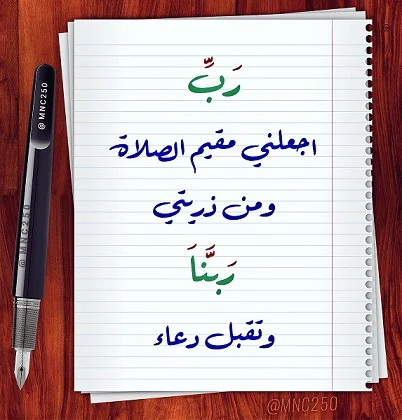 رَبِّ
اجعلني مقيم الصلاة
ومن ذريتي
رَبَّنَا
وتقبل دعاء
@MNC250
@MNC250
@MNC250